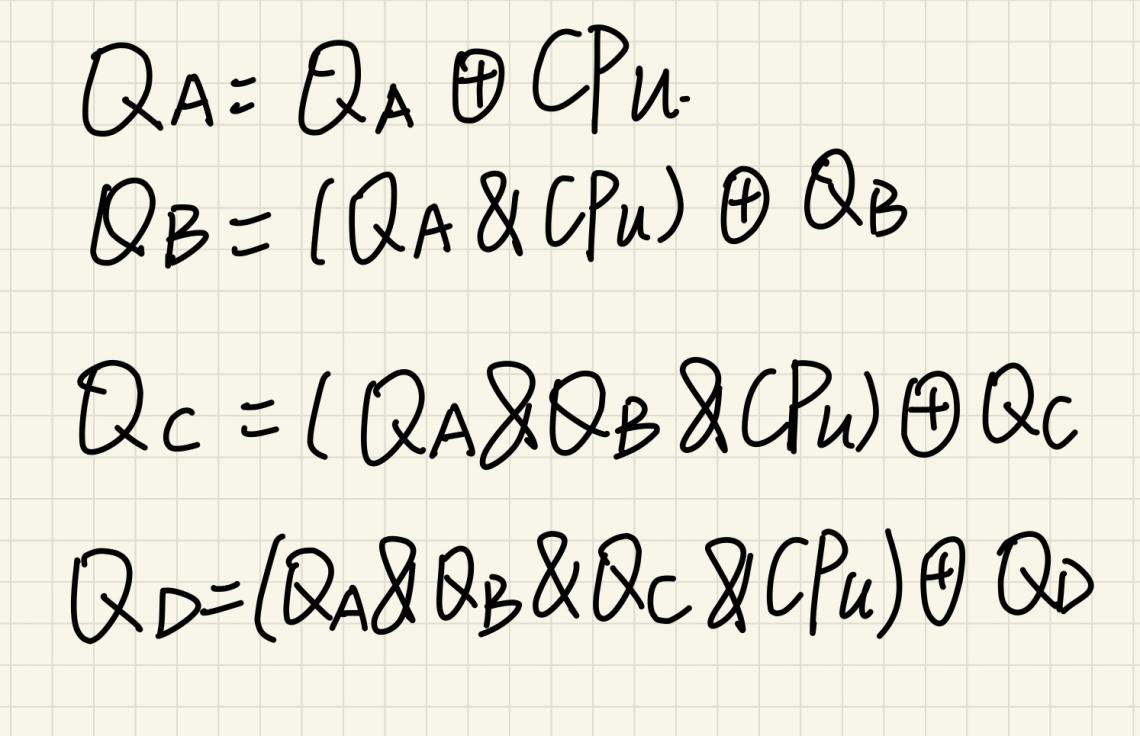 QA = QA ⊕ CPu.
QB = (QA & CPu) ⊕ QB
QC = (QA & QB & CPu) ⊕ QC
QD = (QA & QB & QC & CPu) ⊕ QD